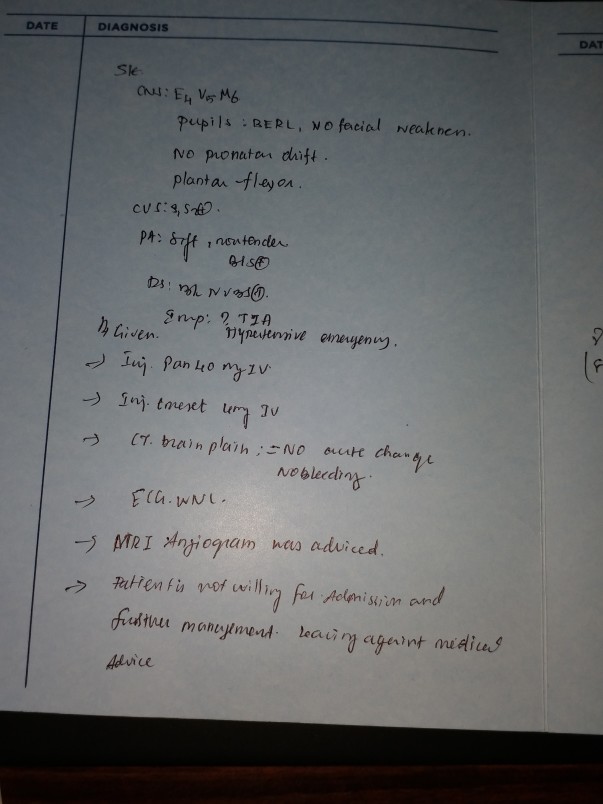 DATE DIAGNOSIS
DAT
S/E
CNS: E4 V5 M6
pupils: BERL, NO facial weakness.
NO pronator drift.
plantar flexor.
CVS: S1 S2 ⊕.
PA: Soft, nontender
BS ⊕
RS: B/L NVBS ⊕.
Imp: ? TIA
Hypertensive emergency.
Given.
→ Inj. Pan 40 mg IV
→ Inj. Emeset 4mg IV
→ CT. brain plain := NO acute change
NO bleeding.
→ ECG. WNL.
→ MRI Angiogram was adviced.
→ Patient is not willing for Admission and
further management. Leaving against medical
Advice